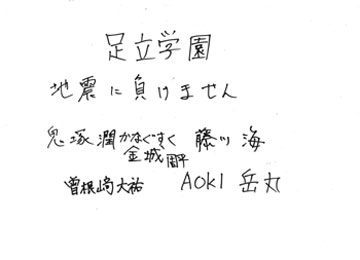 足立学園
地震に負けません
鬼塚潤 かなぐすく 藤川海
金城周平
曽根崎大祐 AOKI 岳丸